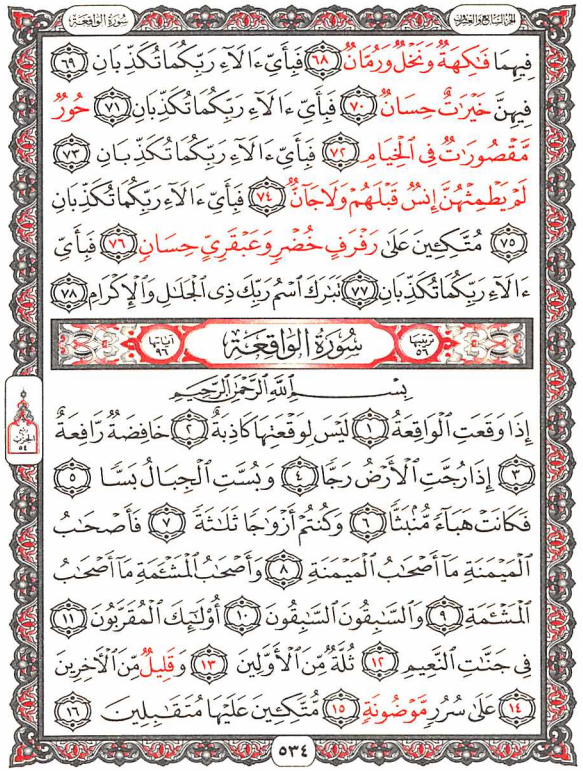 سورة الواقعة
الجزء السابع والعشرون
فِيهِمَا فَٰكِهَةٌ وَنَخْلٌ وَرُمَّانٌ ٦٨ فَبِأَيِّ ءَالَآءِ رَبِّكُمَا تُكَذِّبَانِ ٦٩
فِيهِنَّ خَيْرَٰتٌ حِسَانٌ ٧٠ فَبِأَيِّ ءَالَآءِ رَبِّكُمَا تُكَذِّبَانِ ٧١ حُورٌ
مَّقْصُورَٰتٌ فِي ٱلْخِيَامِ ٧٢ فَبِأَيِّ ءَالَآءِ رَبِّكُمَا تُكَذِّبَانِ ٧٣
لَمْ يَطْمِثْهُنَّ إِنسٌ قَبْلَهُمْ وَلَا جَآنٌّ ٧٤ فَبِأَيِّ ءَالَآءِ رَبِّكُمَا تُكَذِّبَانِ
٧٥ مُتَّكِـِٔينَ عَلَىٰ رَفْرَفٍ خُضْرٍ وَعَبْقَرِيٍّ حِسَانٍ ٧٦ فَبِأَيِّ
ءَالَآءِ رَبِّكُمَا تُكَذِّبَانِ ٧٧ تَبَٰرَكَ ٱسْمُ رَبِّكَ ذِي ٱلْجَلَٰلِ وَٱلْإِكْرَامِ ٧٨
ترتيبها ٥٦
سُورَةُ الوَاقِعَة
آياتها ٩٦
بِسْمِ ٱللَّهِ ٱلرَّحْمَٰنِ ٱلرَّحِيمِ
إِذَا وَقَعَتِ ٱلْوَاقِعَةُ ١ لَيْسَ لِوَقْعَتِهَا كَاذِبَةٌ ٢ خَافِضَةٌ رَّافِعَةٌ
٣ إِذَا رُجَّتِ ٱلْأَرْضُ رَجًّا ٤ وَبُسَّتِ ٱلْجِبَالُ بَسًّا ٥
فَكَانَتْ هَبَآءً مُّنۢبَثًّا ٦ وَكُنتُمْ أَزْوَٰجًا ثَلَٰثَةً ٧ فَأَصْحَٰبُ
ٱلْمَيْمَنَةِ مَآ أَصْحَٰبُ ٱلْمَيْمَنَةِ ٨ وَأَصْحَٰبُ ٱلْمَشْـَٔمَةِ مَآ أَصْحَٰبُ
ٱلْمَشْـَٔمَةِ ٩ وَٱلسَّٰبِقُونَ ٱلسَّٰبِقُونَ ١٠ أُو۟لَٰٓئِكَ ٱلْمُقَرَّبُونَ ١١
فِي جَنَّٰتِ ٱلنَّعِيمِ ١٢ ثُلَّةٌ مِّنَ ٱلْأَوَّلِينَ ١٣ وَقَلِيلٌ مِّنَ ٱلْءَاخِرِينَ
١٤ عَلَىٰ سُرُرٍ مَّوْضُونَةٍ ١٥ مُّتَّكِـِٔينَ عَلَيْهَا مُتَقَٰبِلِينَ ١٦
الحزب
٥٤
٥٣٤